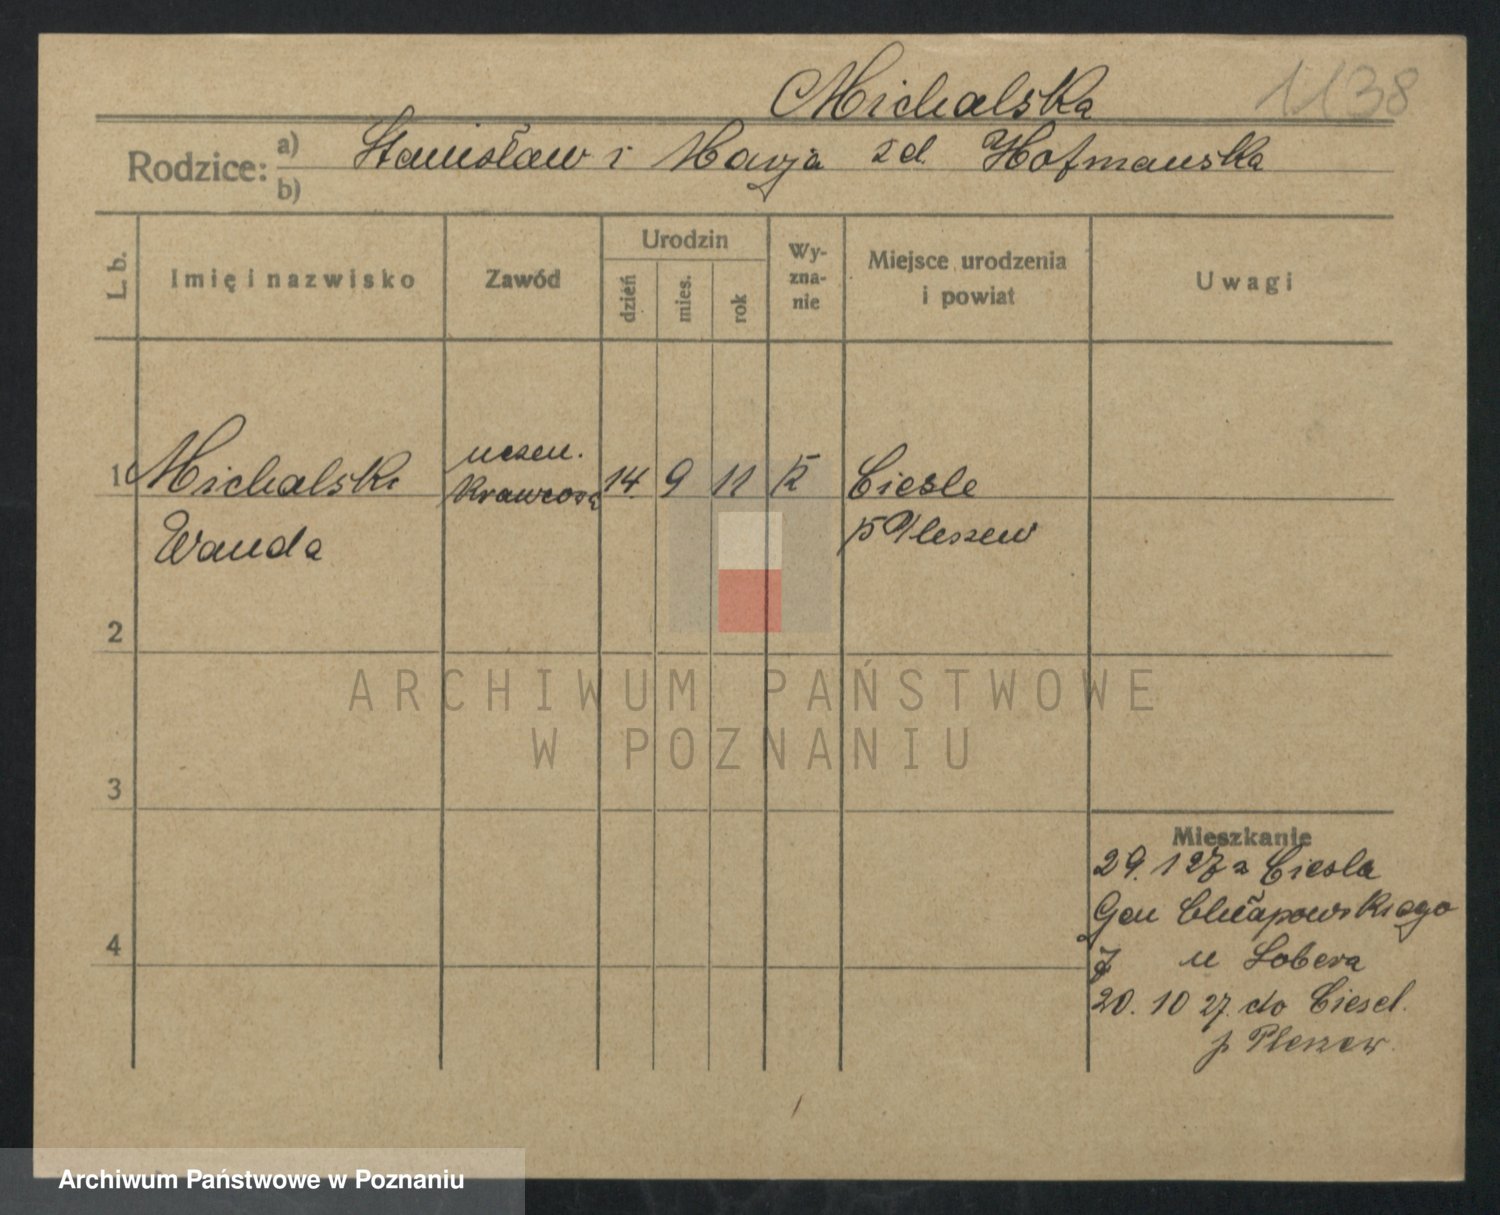 Michalska
1138
Rodzice: a) Stanisław i Marja zd Hofmańska
b)
L. b.
Imię i nazwisko
Zawód
Urodzin
dzień
mies.
rok
Wy-
zna-
nie
Miejsce urodzenia
i powiat
Uwagi
1 Michalska
Wanda
uczen.
Krawcoską
14. 9 11 K
Cieśle
p Pleszew
2
3
4
Mieszkanie
29. 1 27 z Ciesla
Gen Chłapowskiego
7 u Lobera
20. 10 27. do Ciesel.
p Pleszew
ARCHIWUM PAŃSTWOWE
W POZNANIU
Archiwum Państwowe w Poznaniu